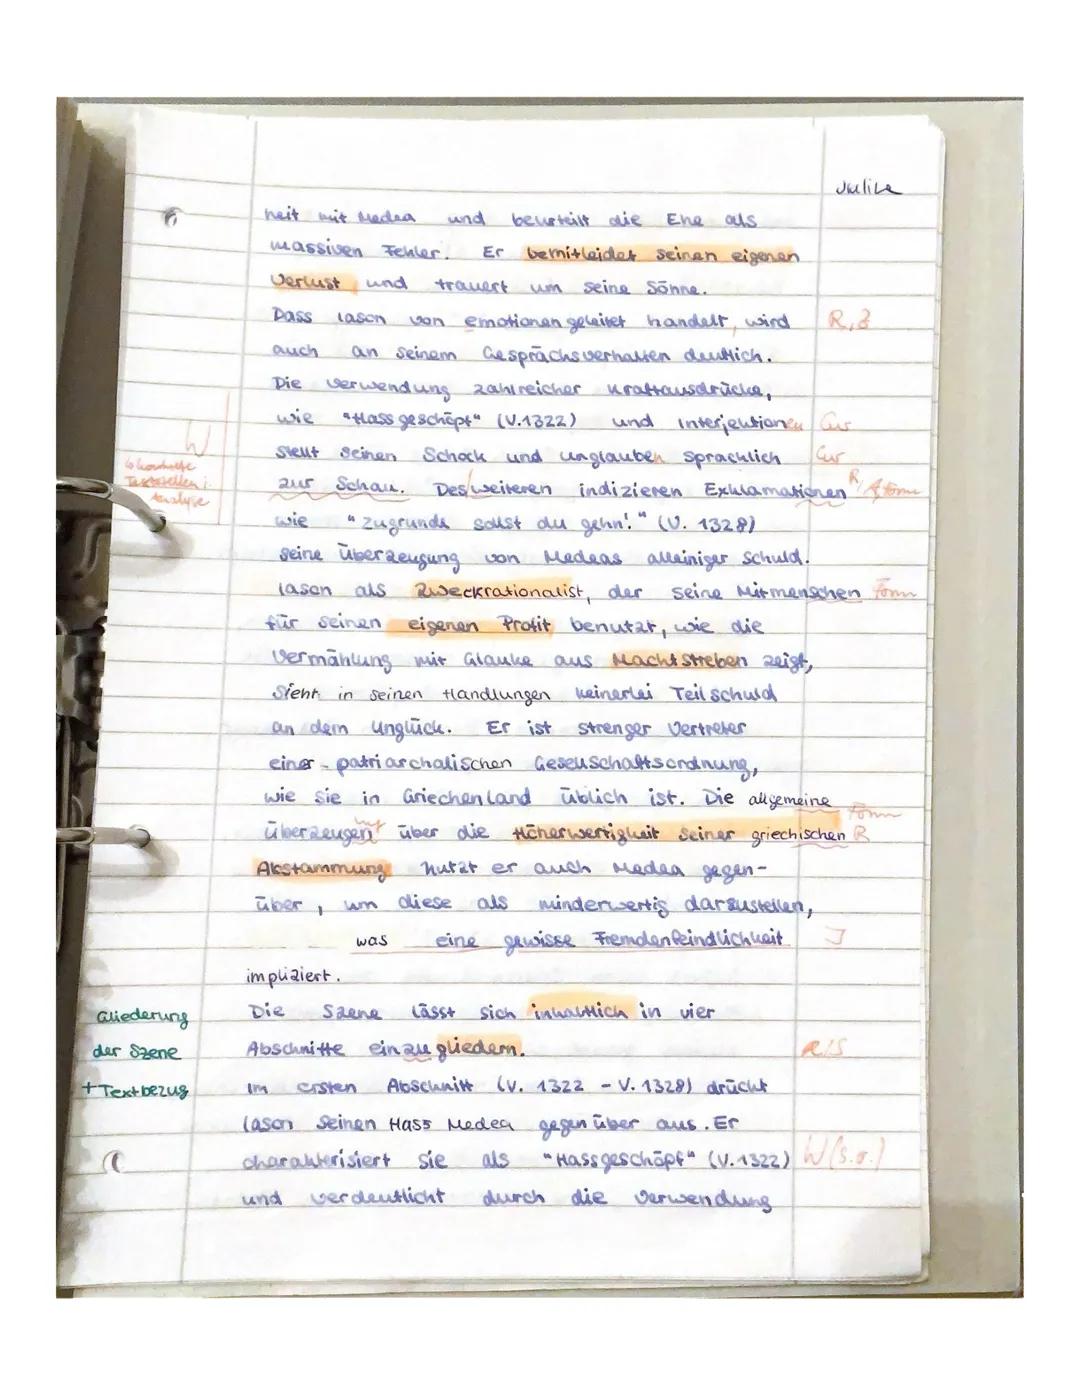 Julia
heit mit Medea und beurteilt die Ehe als
massiven Fehler. Er bemitleidet seinen eigenen
Verlust und trauert um seine Söhne.
Dass Iason von emotionen geleitet handelt, wird R, Z
auch an seinem Gesprächsverhalten deutlich.
Die Verwendung zahlreicher Kraftausdrücke,
wie "Hassgeschöpf" (V.1322) und Interjektionen
W
stellt seinen Schock und unglauben sprachlich
zur Schau. Des weiteren indizieren Exklamationen R
wie "Zugrunde sollst du gehn!" (V. 1328)
seine Überzeugung von Medeas alleiniger Schuld.
Iason als Zweckrationalist, der seine Mitmenschen Form
für seinen eigenen Profit benutzt, wie die
Vermählung mit Glauke aus Machtstreben zeigt,
sieht in seinen Handlungen keinerlei Teilschuld
an dem Unglück. Er ist strenger Vertreter
einer patriarchalischen Gesellschaftsordnung,
wie sie in Griechenland üblich ist. Die allgemeine
Form
über die Höherwertigkeit seiner griechischen R
Abstammung nutzt er auch Medea gegen-
über, um diese als minderwertig darzustellen,
was eine gewisse Fremdenfeindlichkeit
impliziert.
Gliederung der Szene + Textbezug
Die Szene lässt sich inhaltlich in vier
Abschnitte einzugliedern. R/S
Im ersten Abschnitt (V. 1322 - V. 1328) drückt
Iason seinen Hass Medea gegenüber aus. Er
charakterisiert sie als "Hassgeschöpf" (V.1322) W (s.o.)
und verdeutlicht durch die Verwendung